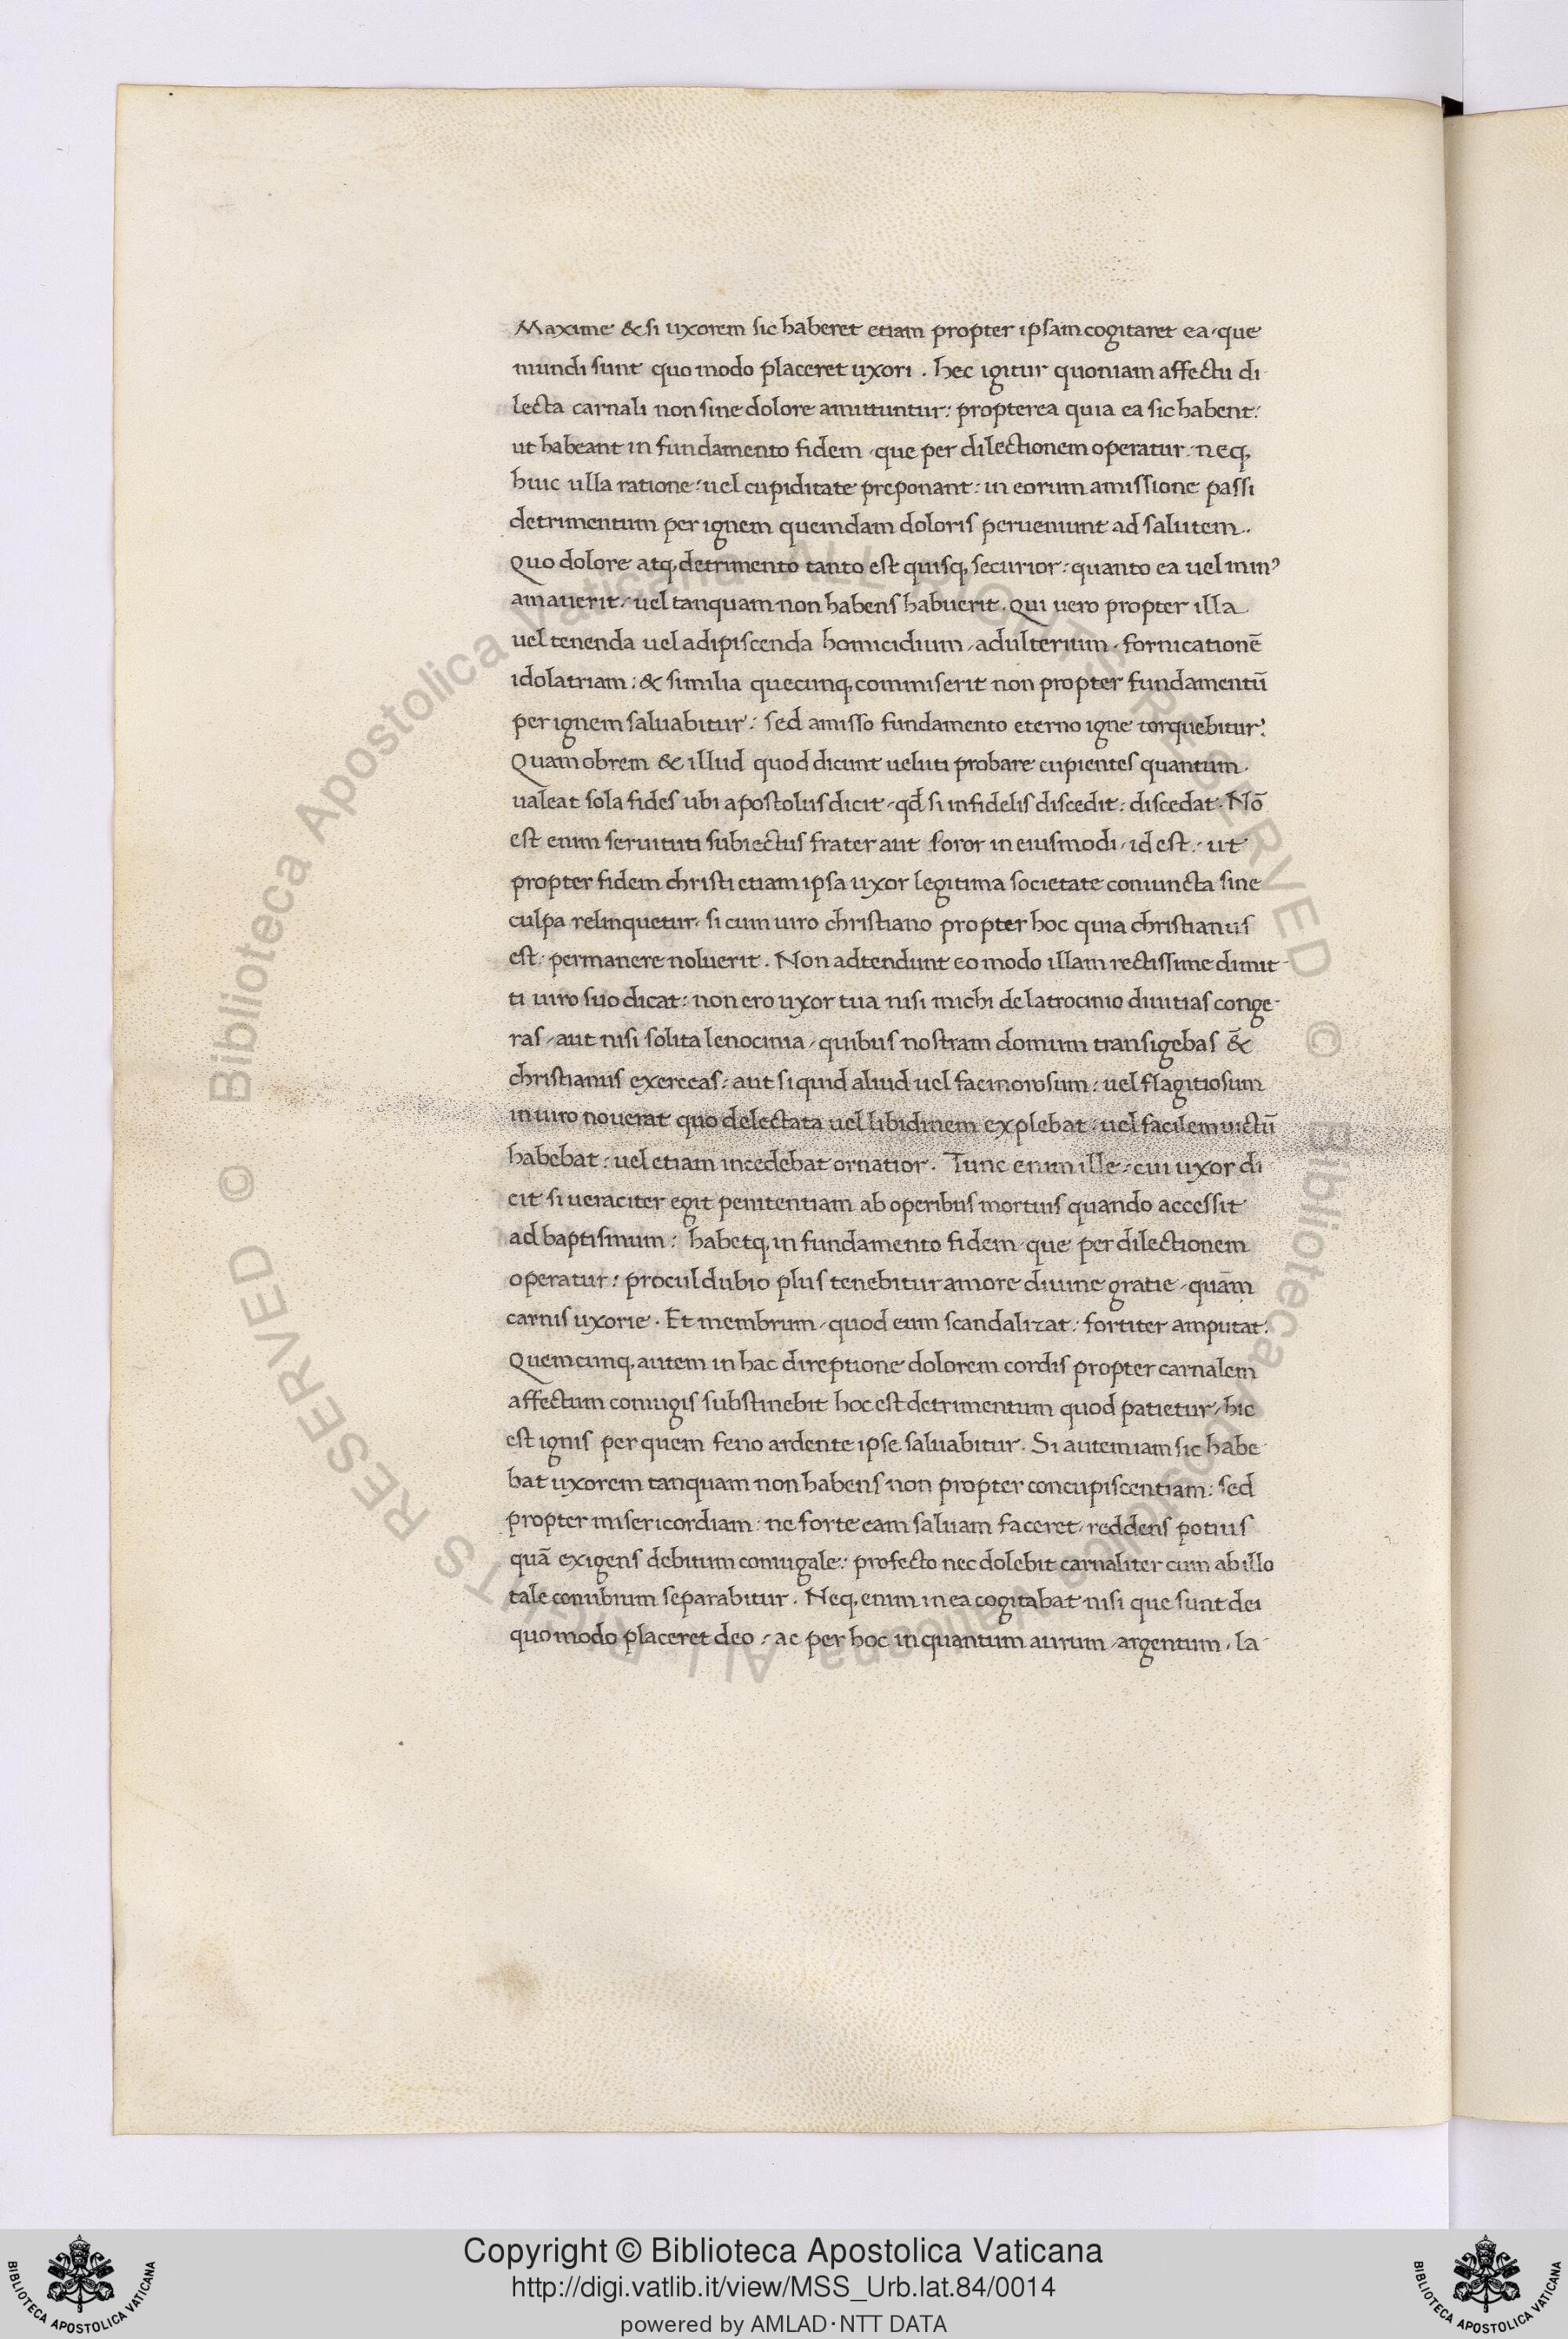 Maxime & si uxorem sic haberet etiam propter ipsam cogitaret ea, que
mundi sunt quo modo placeret uxori. hec igitur quoniam affectu di-
lecta carnali non sine dolore amittuntur: propterea quia ea sic habent:
ut habeant in fundamento fidem, que per dilectionem operatur. neq,
huic ulla ratione: uel cupiditate preponant: in eorum amissione passi
detrimentum per ignem quemdam doloris perueniunt ad salutem..
Quo dolore atq, detrimento tanto est quisq, securior: quanto ea uel minꝰ
amauerit: uel tanquam non habens habuerit. Qui uero propter illa
uel tenenda uel adipiscenda homicidium, adulterium, fornicationē
idolatriam: & similia quecunq, commiserit non propter fundamentū
per ignem saluabitur: sed amisso fundamento eterno igne torquebitur:
Quam obrem & illud quod dicunt ueluti probare cupientes quantum
ualeat sola fides ubi apostolus dicit, qd̄ si infidelis discedit: discedat. Nō
est enim seruituti subiectus frater aut soror in eiusmodi, id est, ut
propter fidem christi etiam ipsa uxor legitima societate coniuncta sine
culpa relinquetur, si cum uiro christiano propter hoc quia christianus
est: permanere noluerit. Non adtendunt eo modo illam rectissime dimit-
ti uiro suo dicat: non ero uxor tua nisi michi de latrocinio diuitias conge-
ras, aut nisi solita lenocinia, quibus nostram domum transigebas &̄
christianus exerceas: aut si quid aliud uel facinorosum: uel flagitiosum
in uiro nouerat quo delectata uel libidinem explebat: uel facilem uictū
habebat: uel etiam incedebat ornatior. Tunc enim ille, cui uxor di
cit si ueraciter egit penitentiam ab operibus mortuis quando accessit
ad baptismum: habetq, in fundamento fidem, que per dilectionem
operatur: procul dubio plus tenebitur amore diuine gratie, quam
carnis uxorie. Et membrum, quod eum scandalizat: fortiter amputat:
Quemcunq, autem in hac direptione dolorem cordis propter carnalem
affectum coniugis substinebit hoc est detrimentum quod patietur, hic
est ignis per quem feno ardente ipse saluabitur. Si autem iam sic habe-
bat uxorem tanquam non habens non propter concupiscentiam: sed
propter misericordiam: ne forte eam saluam faceret, reddens potius
quā exigens debitum coniugale: profecto nec dolebit carnaliter cum ab illo
tale conubium separabitur. Neq, enim in ea cogitabat nisi que sunt dei
quo modo placeret deo: ac per hoc in quantum aurum, argentum, la-
© Biblioteca Apostolica Vaticana ALL RIGHTS RESERVED © Biblioteca Apostolica Vaticana ALL RIGHTS RESERVED
Copyright © Biblioteca Apostolica Vaticana
http://digi.vatlib.it/view/MSS_Urb.lat.84/0014
powered by AMLAD·NTT DATA
BIBLIOTECA APOSTOLICA VATICANA
BIBLIOTECA APOSTOLICA VATICANA